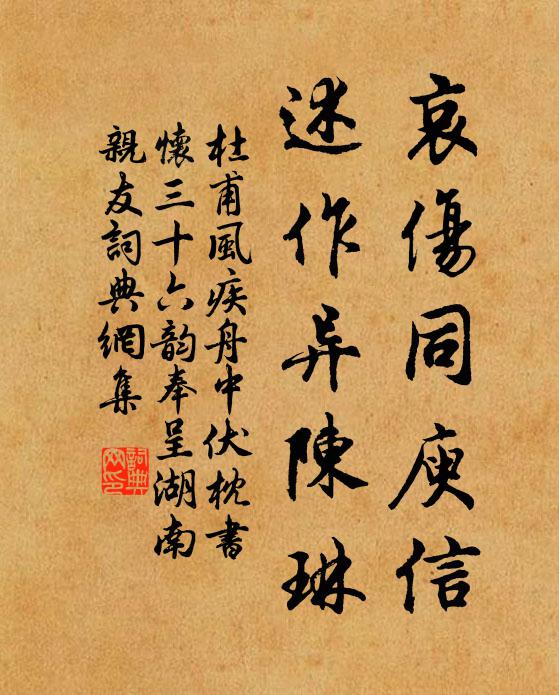 哀傷同庾信
述作异陳琳
杜甫風疾舟中伏枕書
懷三十六韵奉呈湖南
親友詞典網集
詞典網印